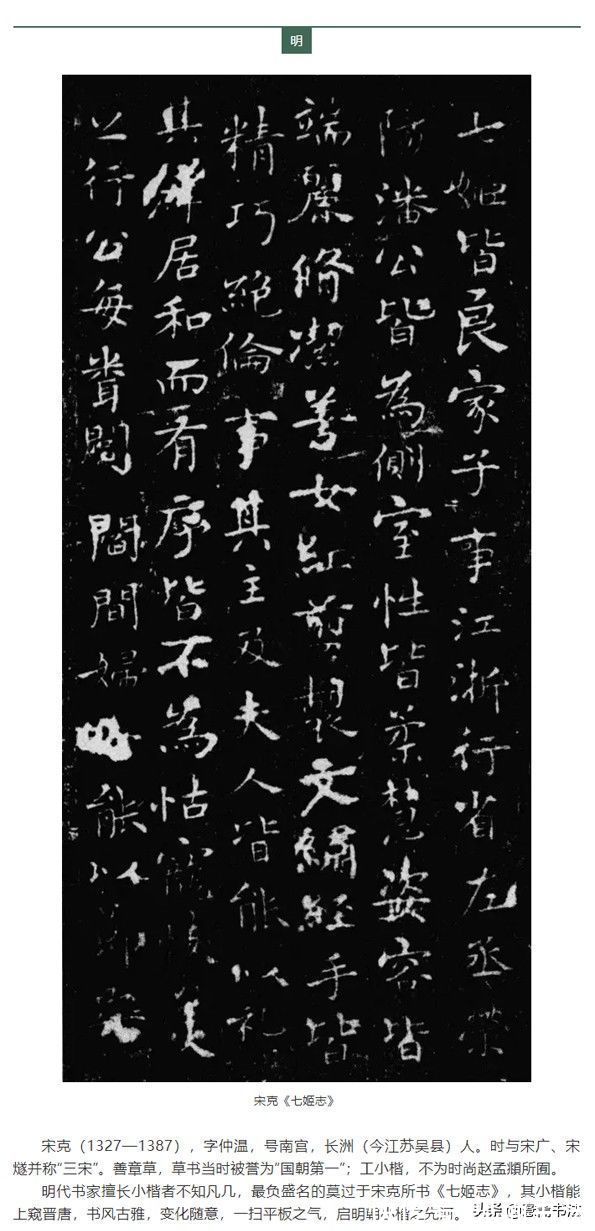 明
七姬皆良家子事江浙行省左丞榮
防潘公皆為側室性皆柔慧姿容皆
端麗脩潔善女紅剪製文繡經手皆
精巧絕倫事其主及夫人皆能以礼
其居和而有序皆不為怙寵忮美
之行公每閻間婦能以節
宋克《七姬志》
宋克（1327—1387），字仲温，号南宫，长洲（今江苏吴县）人。时与宋广、宋
燧并称“三宋”。善章草，草书当时被誉为“国朝第一”；工小楷，不为时尚赵孟頫所囿。
明代书家擅长小楷者不知凡几，最负盛名的莫过于宋克所书《七姬志》，其小楷能
上窥晋唐，书风古雅，变化随意，一扫平板之气，启明时小楷之先河。
头条